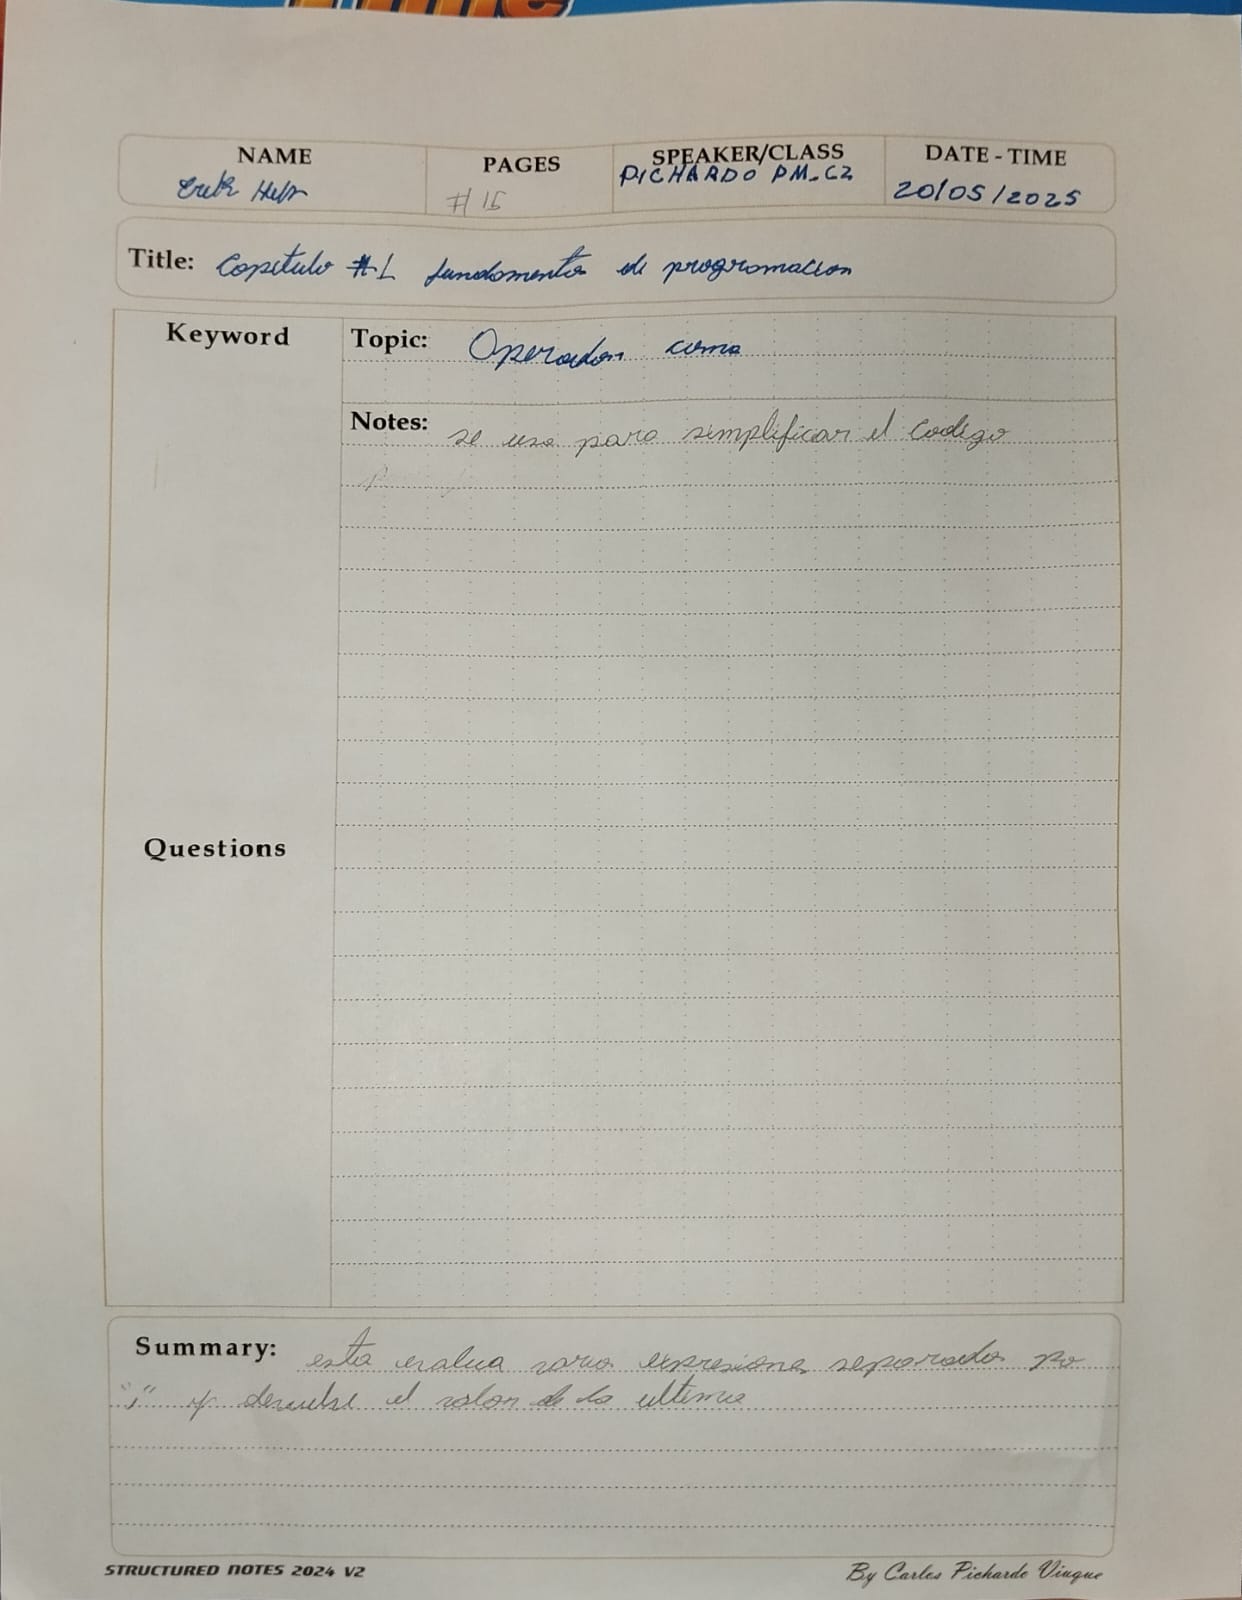 NAME PAGES SPEAKER/CLASS DATE - TIME
Erik # 15 PICHARDO PM-C2 20/05/2025
Title: Capitulo #1 fundamentos de programacion
Keyword
Topic: Operador coma
Notes: se usa para simplificar el codigo
Questions
Summary: esta evalua varias expresiones separadas po
"," y devuelve el valor de la ultima
STRUCTURED NOTES 2024 V2
By Carlos Pichardo Viuque